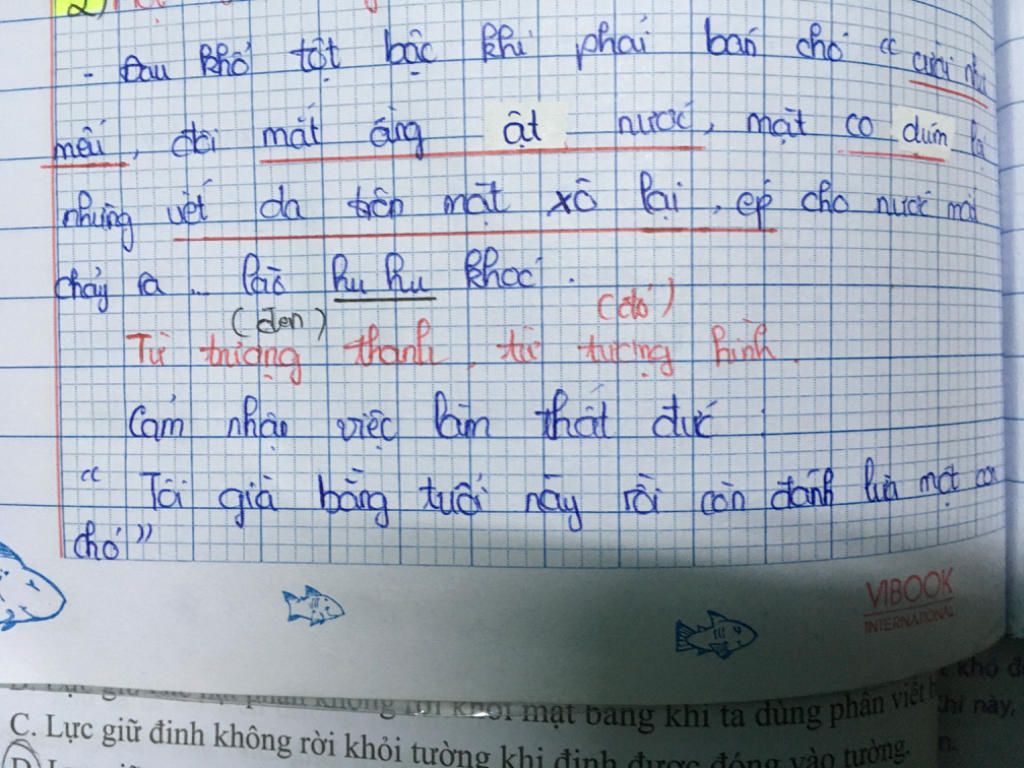 2)
- Đau khổ tột bậc khi phải bán chó "cười như
mếu, đôi mắt ầng ật nước, mặt co dúm lại
những vết da trên mặt xô lại, ép cho nước mắt
chảy ra ... lão hu hu khóc.
(đen) (đỏ)
Từ tượng thanh, từ tượng hình.
Cảm nhận việc làm thất đức
" Tôi già bằng tuổi này rồi còn đánh lừa một con
chó"
VIBOOK
INTERNATIONAL
khó đ
thì này,
không rời khỏi mặt bảng khi ta dùng phấn viết b
C. Lực giữ đinh không rời khỏi tường khi đinh được đóng vào tường.
D